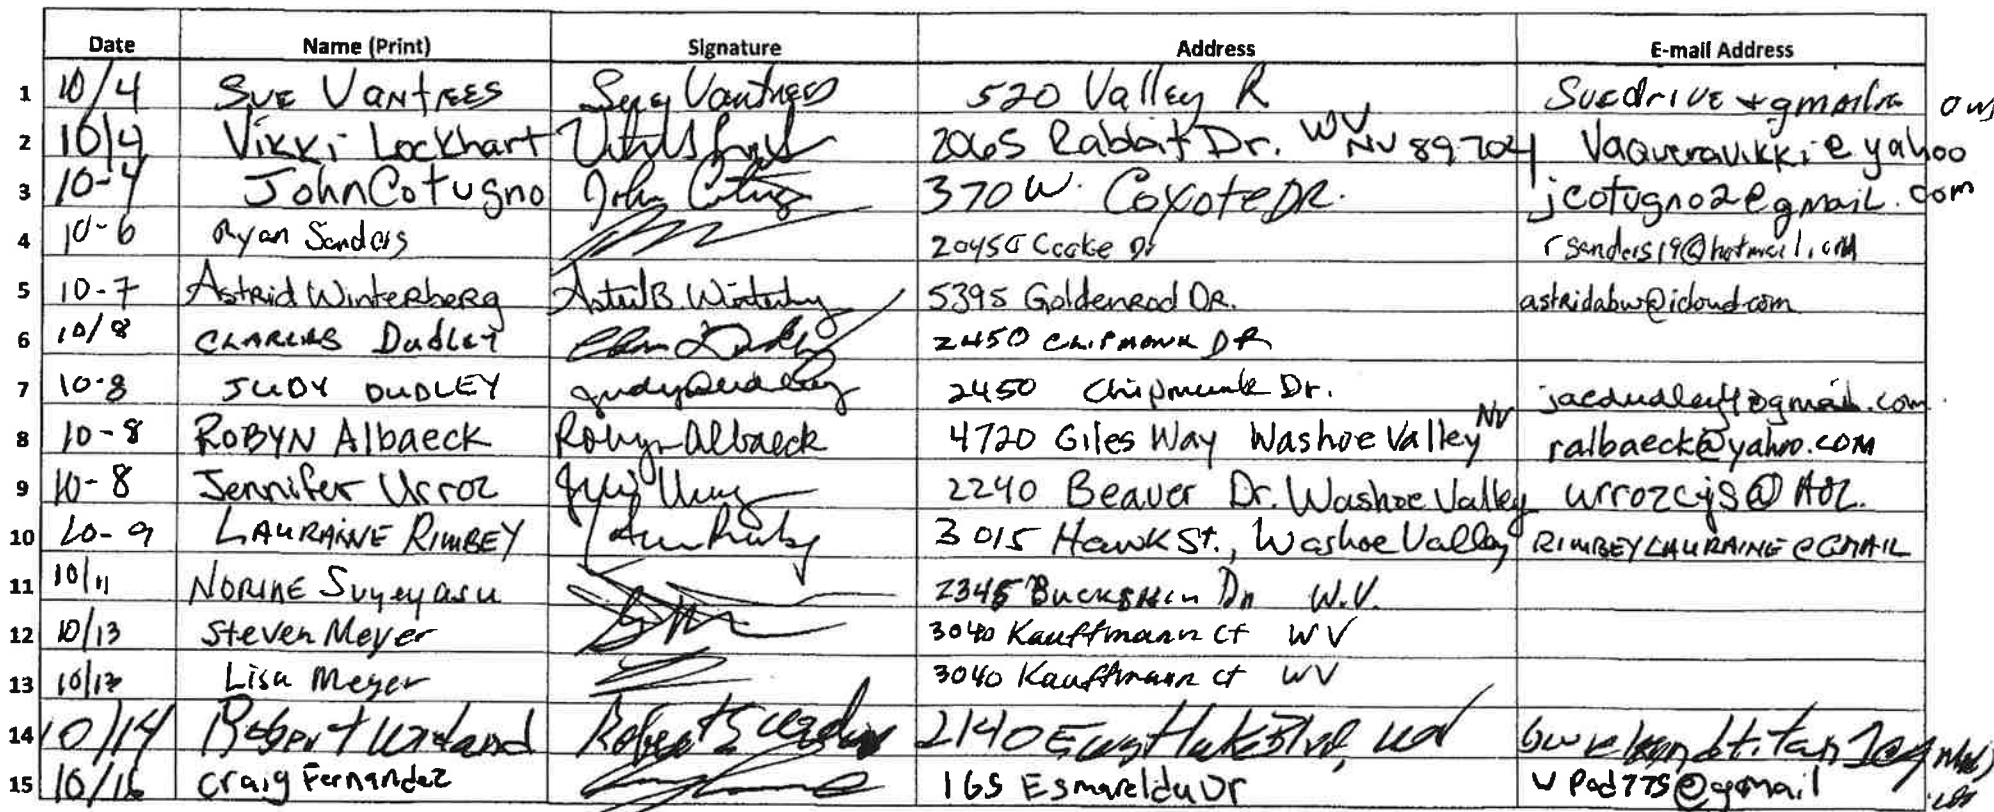 Date Name (Print) Signature Address E-mail Address
1 10/4 SUE VANTREES Sue Vantrees 520 Valley R
2 10/4 Vikki Lockhart 2065 Rabbit Dr. WV NV 89704 Vaqueravikki@yahoo
3 10-4 John Cotugno John 370 W. Coyote DR. jcotugno2@gmail.com
4 10-6 Ryan Sanders Cooke Dr rsanders19@hotmail.com
5 10-7 Astrid Winterberg Astrid B. Winterberg 5395 Goldenrod DR. astridabw@icloud.com
6 10/8 CHARLES Dudley 2450 CHIPMONK DR
7 10-8 JUDY DUDLEY Judy Dudley 2450 Chipmunk Dr.
8 10-8 ROBYN Albaeck Robyn Albaeck 4720 Giles Way Washoe Valley NV ralbaeck@yahoo.com
9 10-8 Jennifer Urroz 2240 Beaver Dr. Washoe Valley urrozcjs@AOL.
10 10-9 LAURAINE RIMBEY 3015 Hawk St., Washoe Valley RIMBEYLAURAINE@GMAIL
11 10/11 NORINE Suyeyasu 2345 Buckskin Dr W.V.
12 10/13 Steven Meyer 3040 Kauffmann ct WV
13 10/13 Lisa Meyer 3040 Kauffmann ct WV
14 10/14 Robert Robert 2140
15 10/16 Craig Fernandez 165 Esmarelda Dr